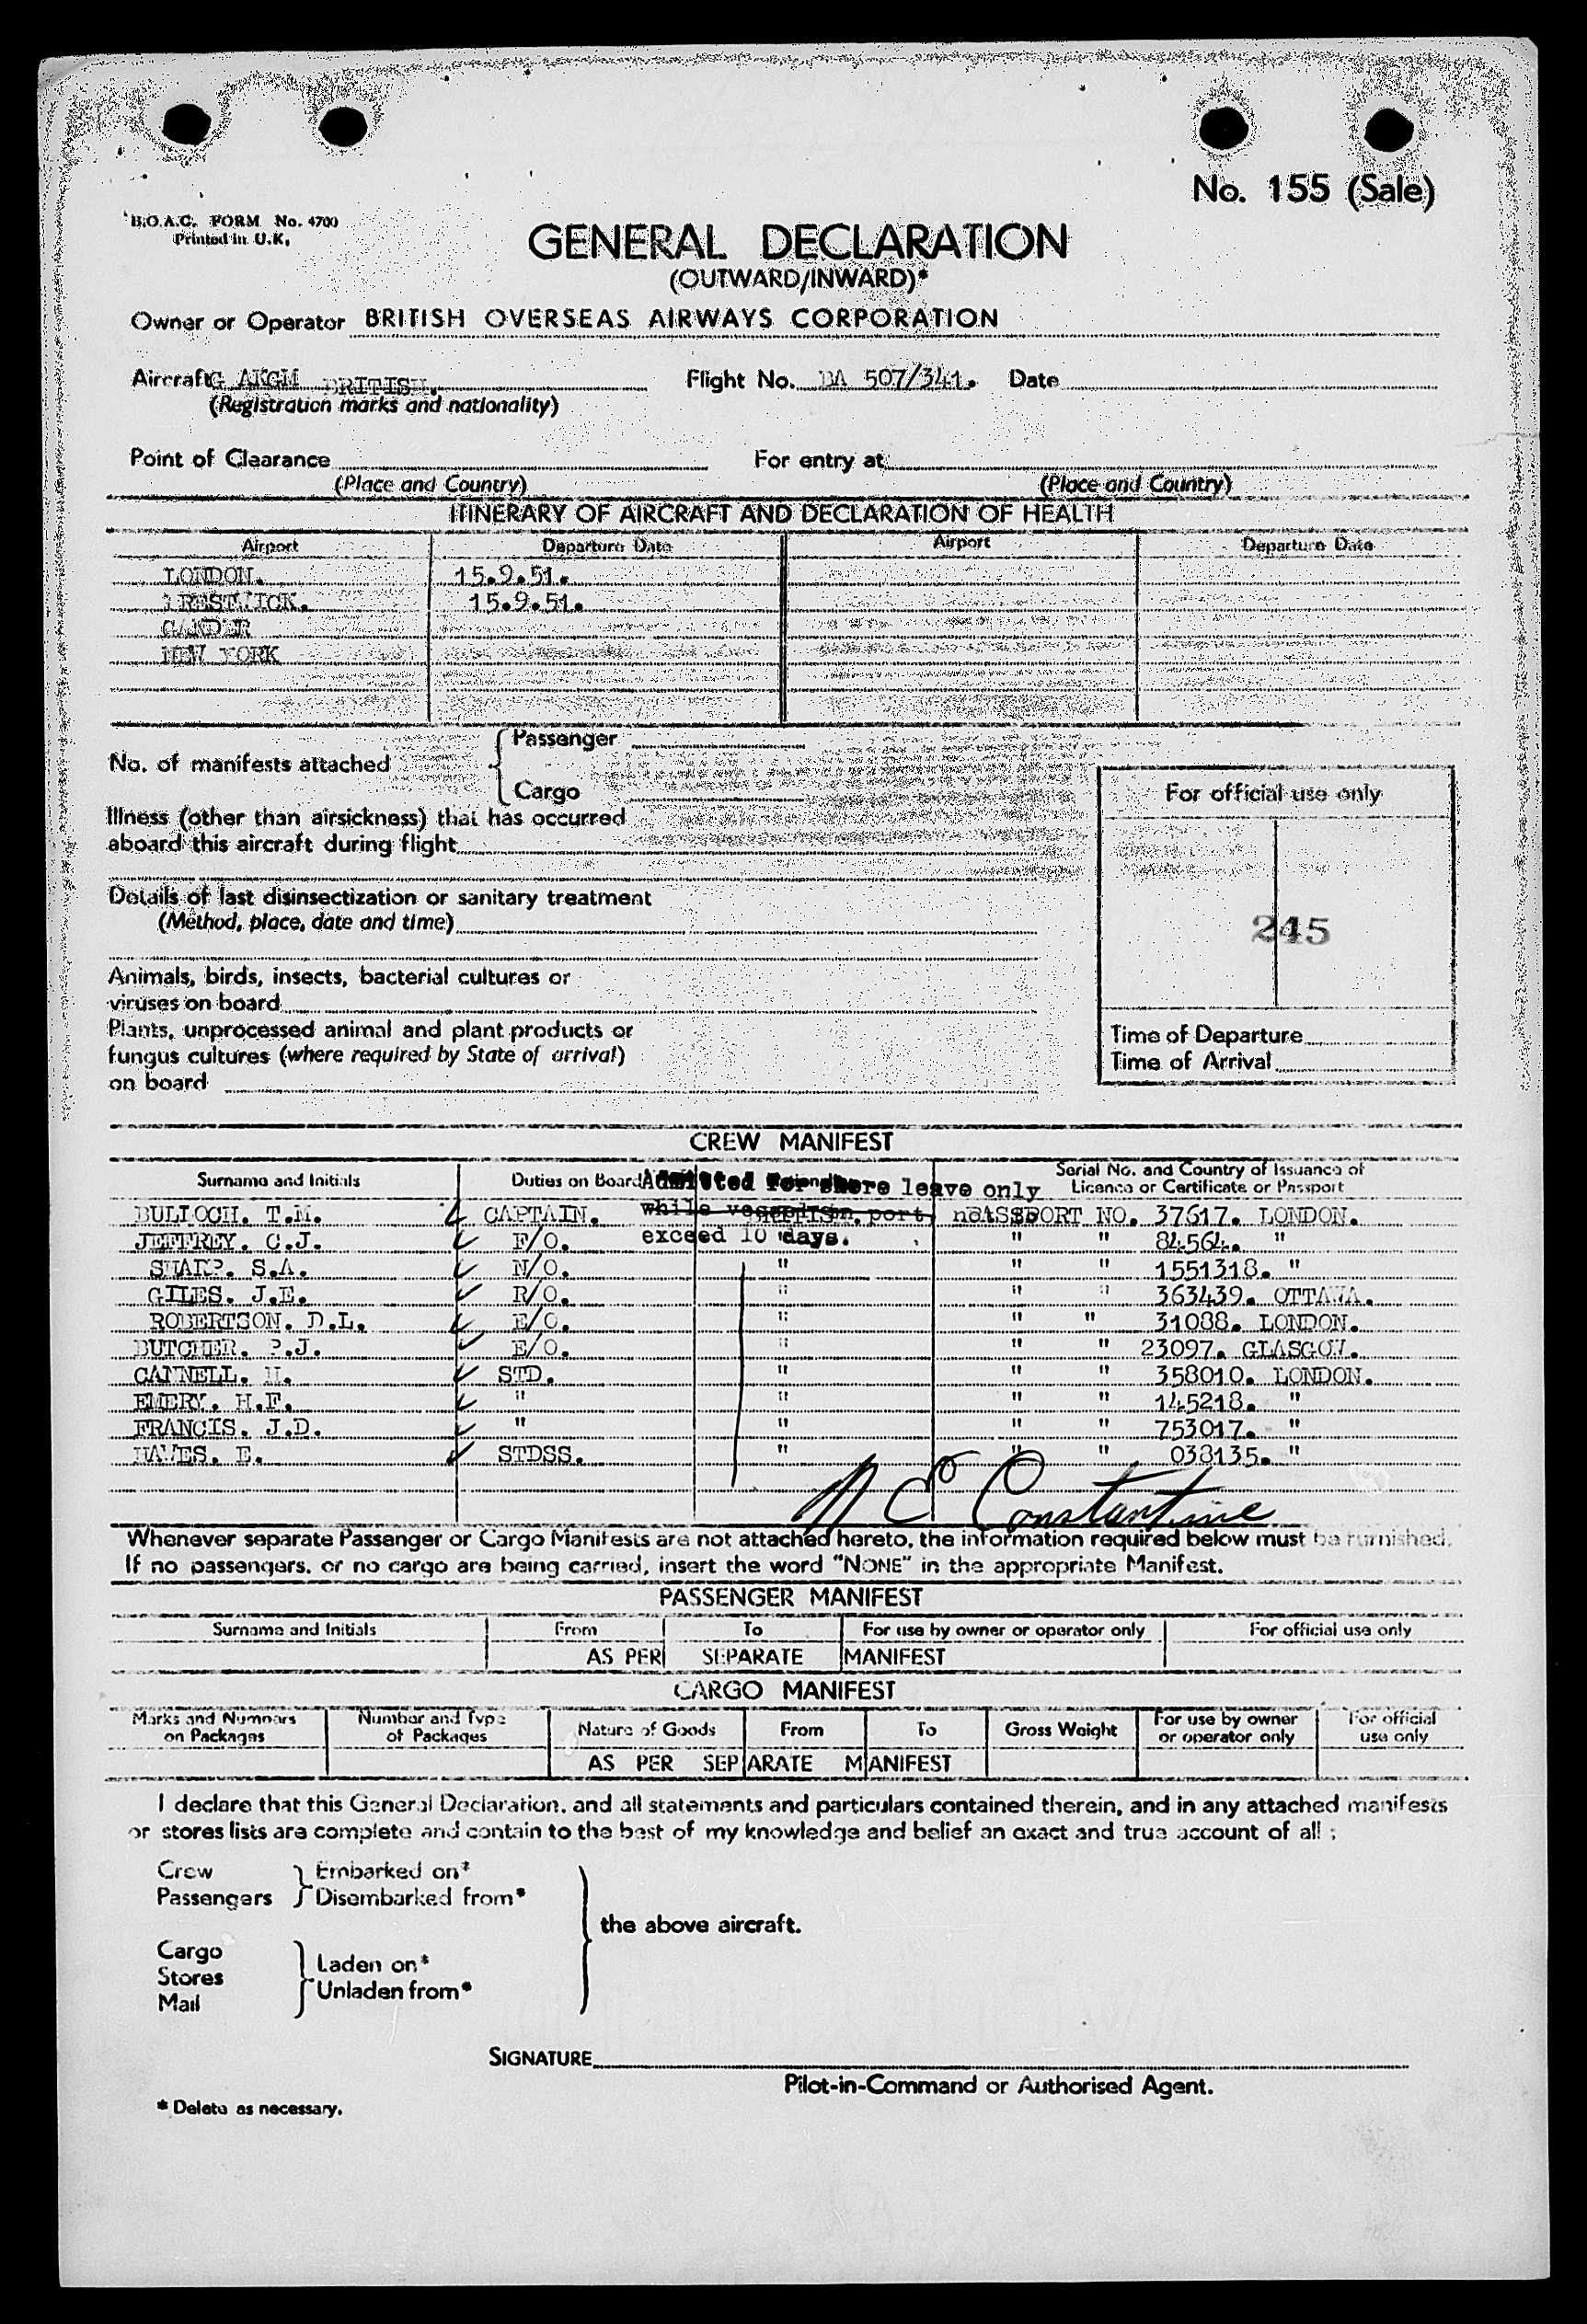 No. 155 (Sale)
B.O.A.C. FORM No. 4700
Printed in U.K.
GENERAL DECLARATION
(OUTWARD/INWARD)*
Owner or Operator BRITISH OVERSEAS AIRWAYS CORPORATION
Aircraft G AKGM BRITISH. Flight No. BA 507/341. Date
(Registration marks and nationality)
Point of Clearance For entry at
(Place and Country) (Place and Country)
ITINERARY OF AIRCRAFT AND DECLARATION OF HEALTH
Airport Departure Date Airport Departure Date
LONDON. 15.9.51.
PRESTWICK. 15.9.51.
GANDER
NEW YORK
No. of manifests attached { Passenger
Cargo
For official use only
Illness (other than airsickness) that has occurred
aboard this aircraft during flight
Details of last disinsectization or sanitary treatment
(Method, place, date and time)
245
Animals, birds, insects, bacterial cultures or
viruses on board
Plants, unprocessed animal and plant products or
fungus cultures (where required by State of arrival)
on board
Time of Departure
Time of Arrival
CREW MANIFEST
Surname and Initials Duties on Board Nationality Serial No. and Country of Issuance of
Licence or Certificate or Passport
Admitted for shore leave only
while vessel in port not to
exceed 10 days.
BULLOCH. T.M. CAPTAIN. BRITISH. PASSPORT NO. 37617. LONDON.
JEFFREY. C.J. F/O. " " " 84564. "
SHARP. S.A. N/O. " " " 1551318. "
GILES. J.E. R/O. " " " 363439. OTTAWA.
ROBERTSON. D.L. E/O. " " " 31088. LONDON.
BUTCHER. P.J. E/O. " " " 23097. GLASGOW.
CANNELL. H. STD. " " " 358010. LONDON.
EMERY. H.F. " " " " 145218. "
FRANCIS. J.D. " " " " 753017. "
HAWES. E. STDSS. " " " 038135. "
Constantine
Whenever separate Passenger or Cargo Manifests are not attached hereto, the information required below must be furnished.
If no passengers, or no cargo are being carried, insert the word "NONE" in the appropriate Manifest.
PASSENGER MANIFEST
Surname and Initials From To For use by owner or operator only For official use only
AS PER SEPARATE MANIFEST
CARGO MANIFEST
Marks and Numbers on Packages Number and Type of Packages Nature of Goods From To Gross Weight For use by owner or operator only For official use only
AS PER SEPARATE MANIFEST
I declare that this General Declaration, and all statements and particulars contained therein, and in any attached manifests
or stores lists are complete and contain to the best of my knowledge and belief an exact and true account of all :
Crew } Embarked on*
Passengers } Disembarked from*
the above aircraft.
Cargo
Stores } Laden on*
Mail } Unladen from*
SIGNATURE
Pilot-in-Command or Authorised Agent.
* Delete as necessary.